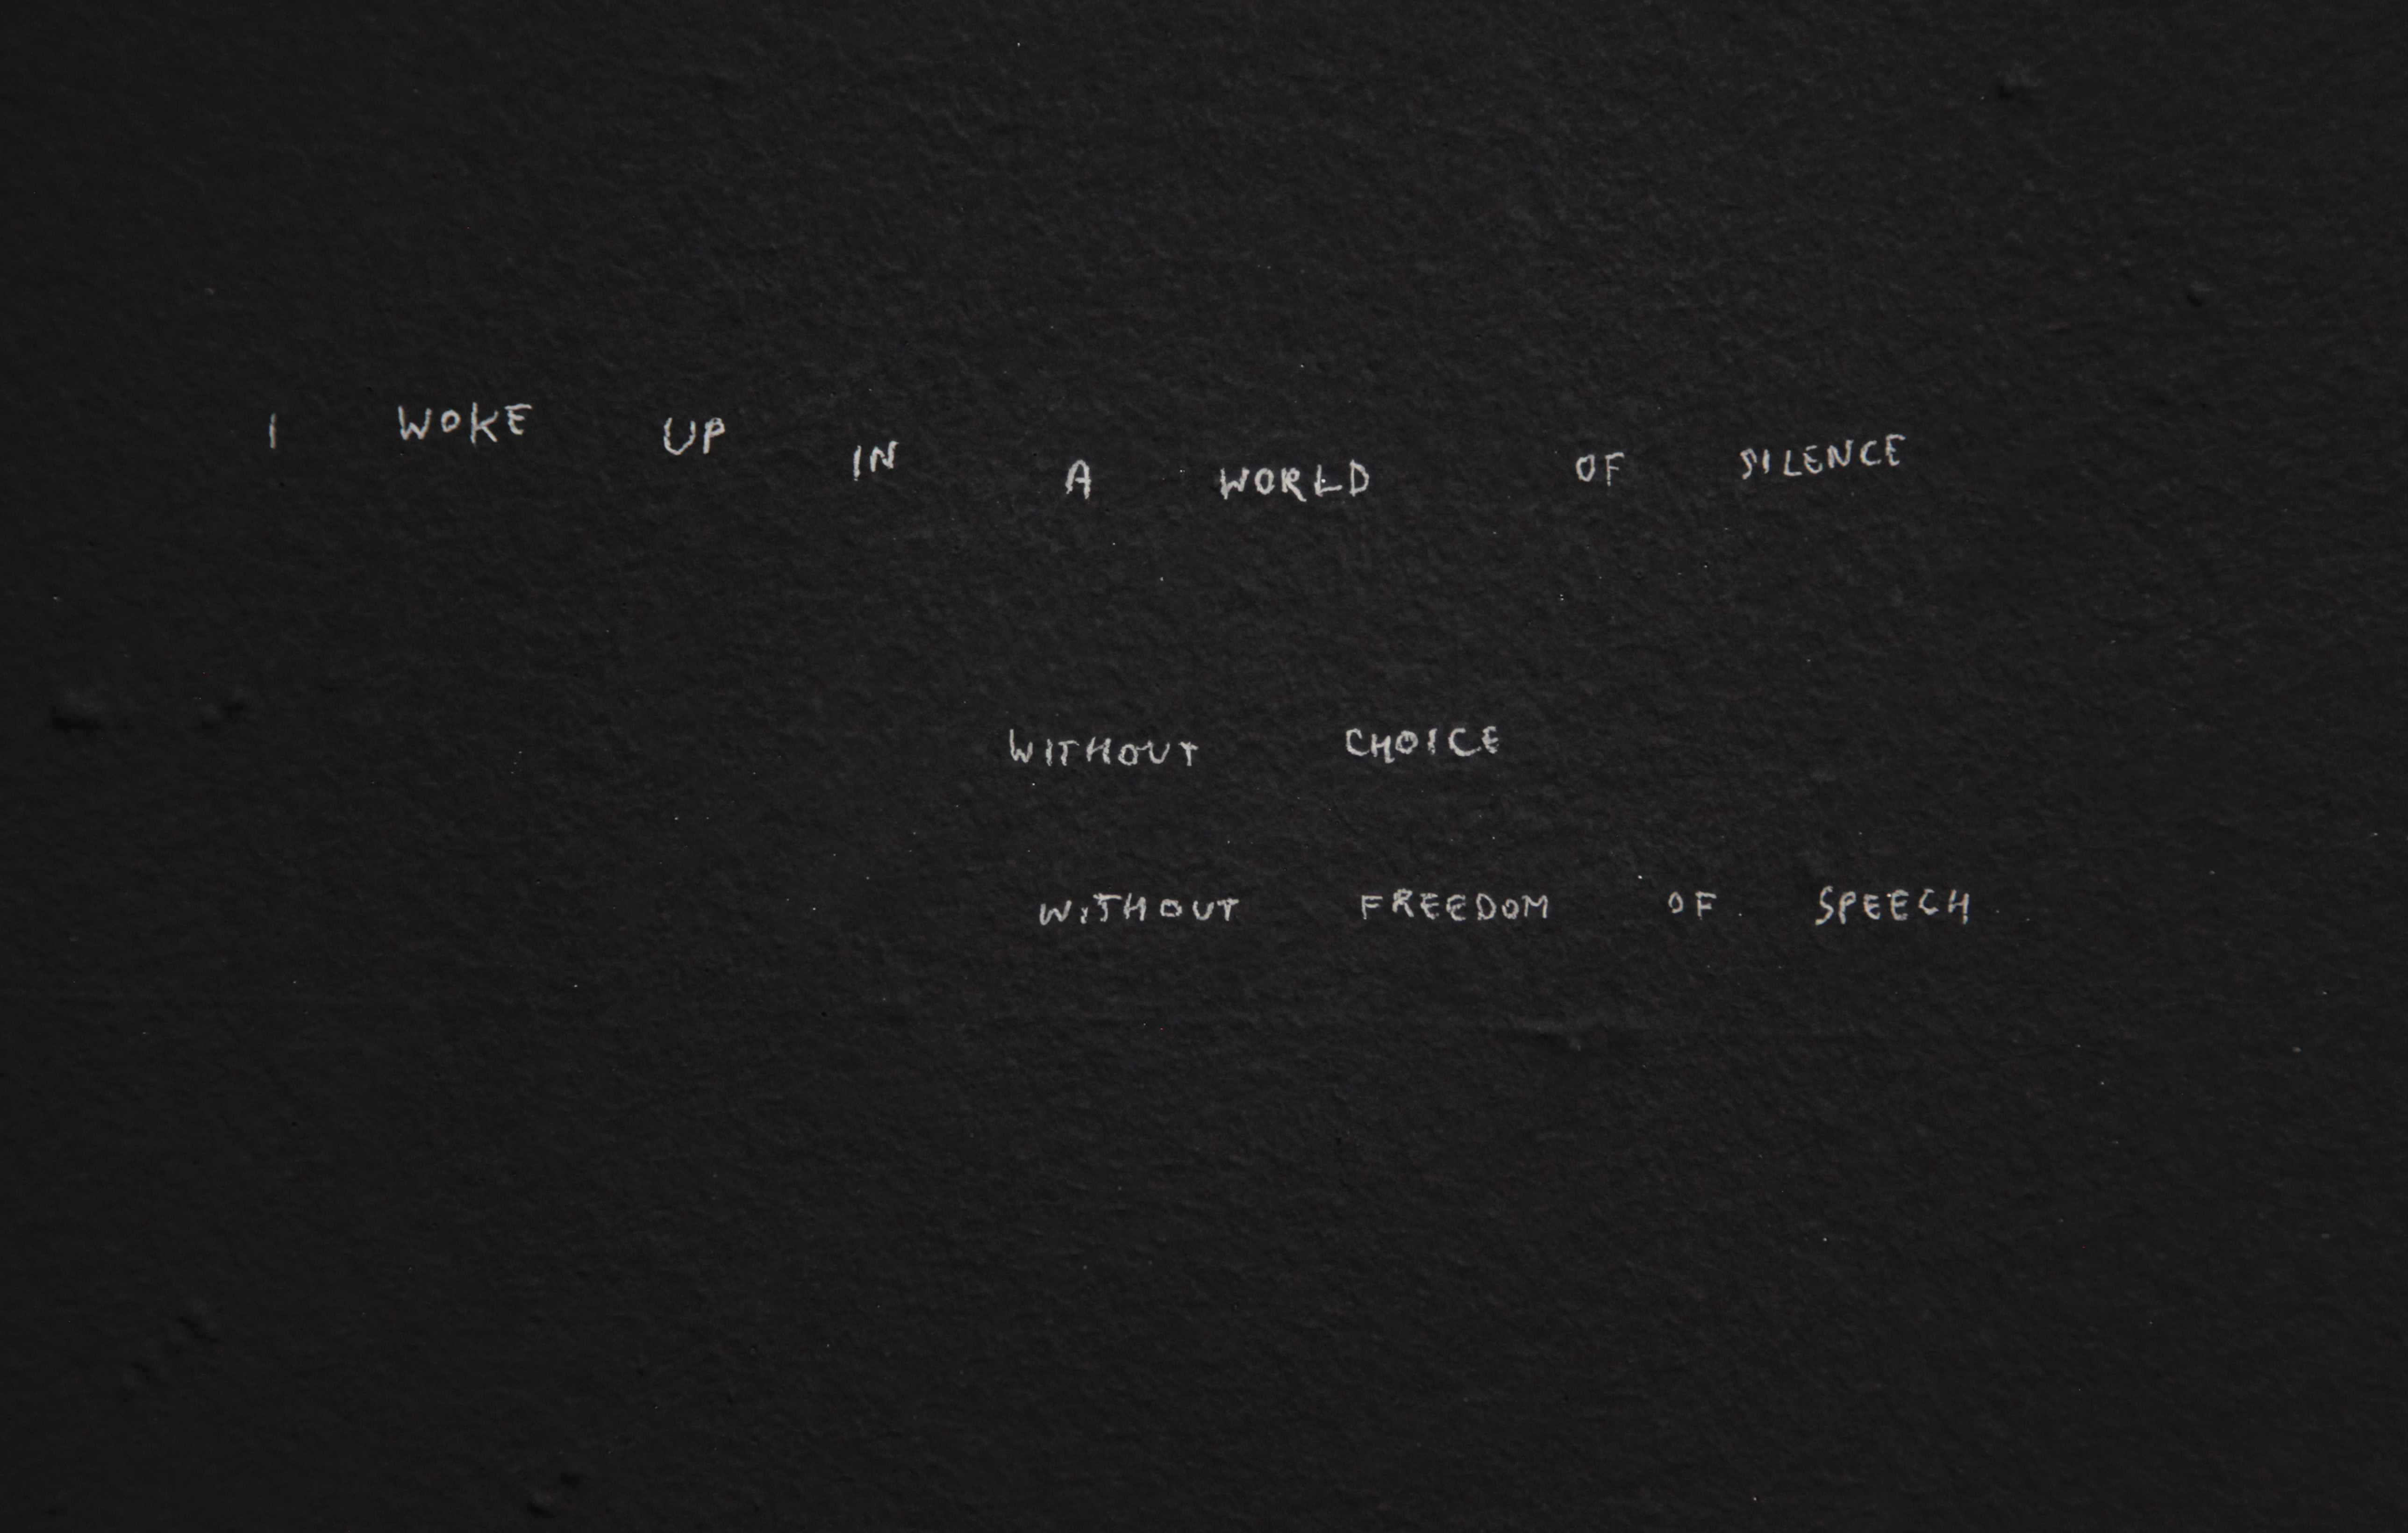 I WOKE UP IN A WORLD OF SILENCE
WITHOUT CHOICE
WITHOUT FREEDOM OF SPEECH